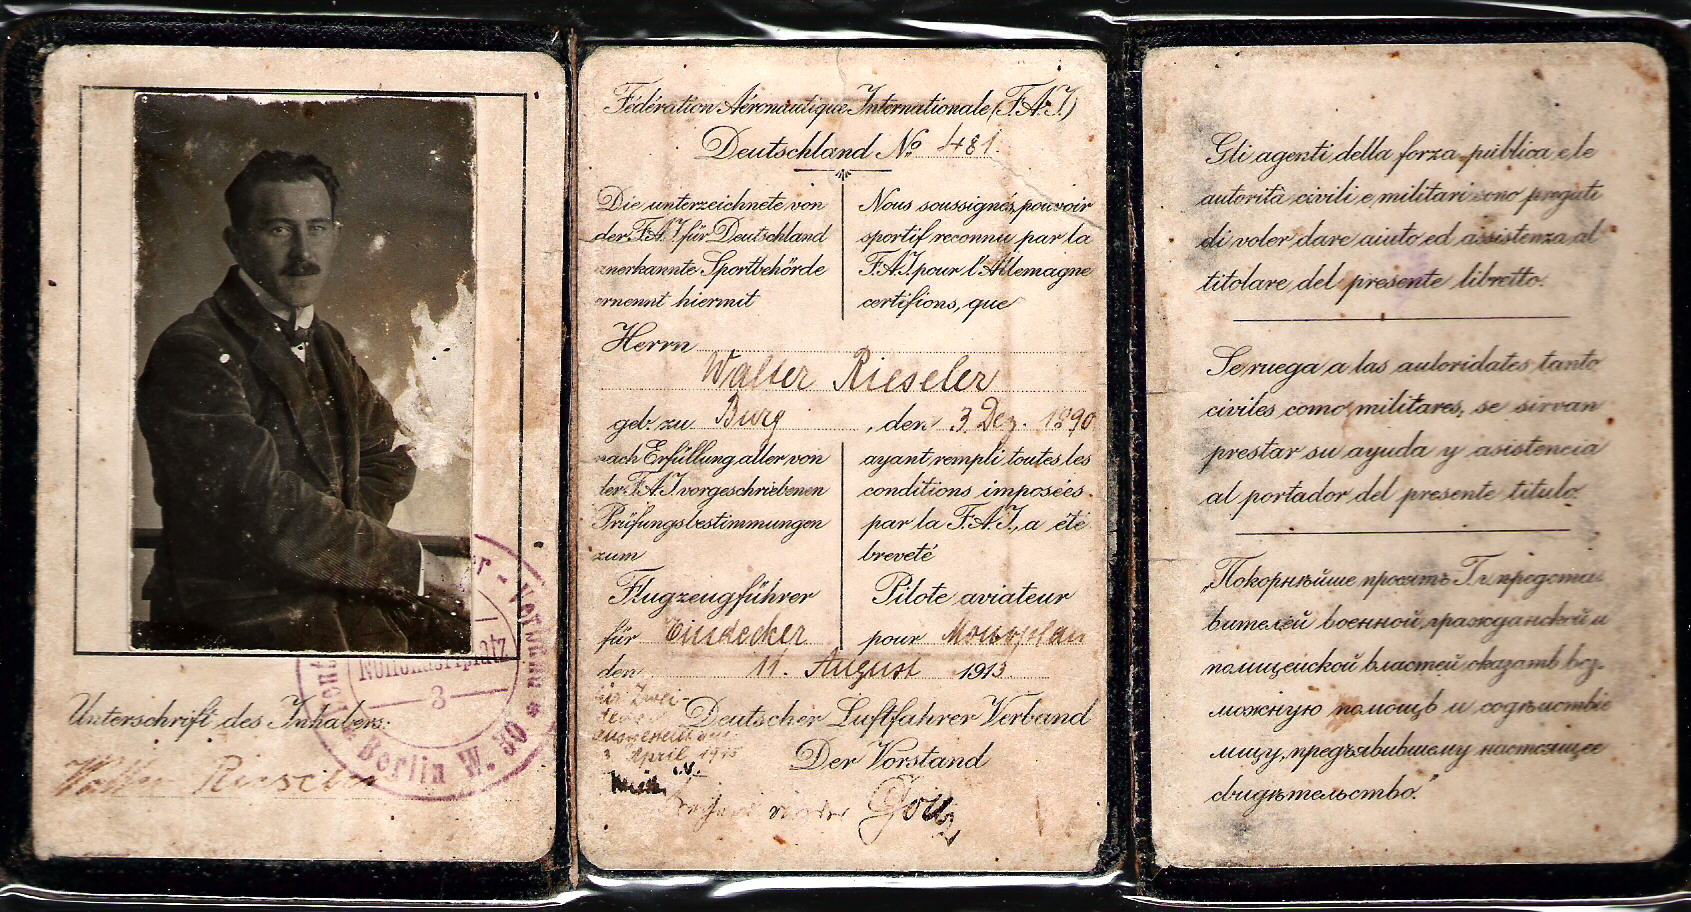 Unterschrift des Inhabers:
Walter Rieseler
Nollendorfplatz
3
Berlin W. 30
Fédération Aéronautique Internationale (F.A.I.)
Deutschland No. 481.
Die unterzeichnete von
der F.A.I für Deutschland
anerkannte Sportbehörde
ernennt hiermit
Nous soussignés, pouvoir
sportif reconnu par la
F.A.I pour l'Allemagne
certifions, que
Herrn
Walter Rieseler
geb. zu Burg, den 3. Dez. 1890
nach Erfüllung aller von
der F.A.I vorgeschriebenen
Prüfungsbestimmungen
zum
Flugzeugführer
für Eindecker
ayant rempli toutes les
conditions imposées
par la F.A.I., a été
breveté
Pilote aviateur
pour Monoplan
den 11. August 1913.
für Zwei-
3 April 1915
Deutscher Luftfahrer Verband
Der Vorstand
i.V.
Gli agenti della forza pubblica e le
autorità civili e militari sono pregati
di voler dare aiuto ed assistenza al
titolare del presente libretto.
Se ruega a las autoridates tanto
civiles como militares, se sirvan
prestar su ayuda y asistencia
al portador del presente titulo.
„Покорнѣйше просятъ Гг. предста-
вителей военной, гражданской и
полицейской властей оказать воз-
можную помощь и содѣйствіе
лицу, предъявившему настоящее
свидѣтельство."